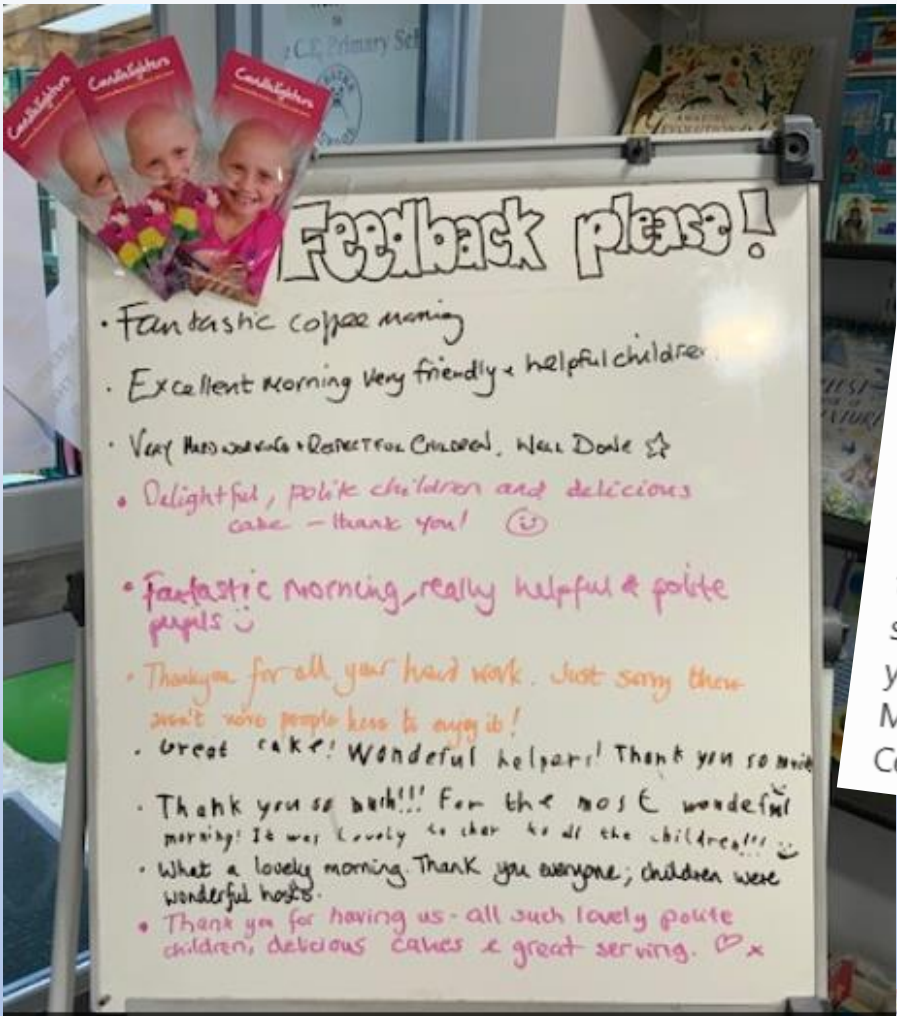 Candlelighters
Candlelighters
Candlelighters
C.E. Primary Sch
AMAZING
EVOLUTION
Feedback please!
• Fantastic coffee morning
• Excellent morning very friendly + helpful children.
• Very Hard working + Respectful Children. Well Done ☆
• Delightful, polite children and delicious
cake – thank you! ☺
• Fantastic morning, really helpful & polite
pupils ☺
• Thankyou for all your hard work. Just sorry there
aren't more people here to enjoy it!
• Great cake! Wonderful helpers! Thank you so much
• Thank you so much!!! For the most wonderful
morning! It was lovely to chat to all the children!!! ☺
• What a lovely morning. Thank you everyone; children were
wonderful hosts.
• Thank you for having us - all such lovely polite
children, delicious cakes & great serving. ♡ x